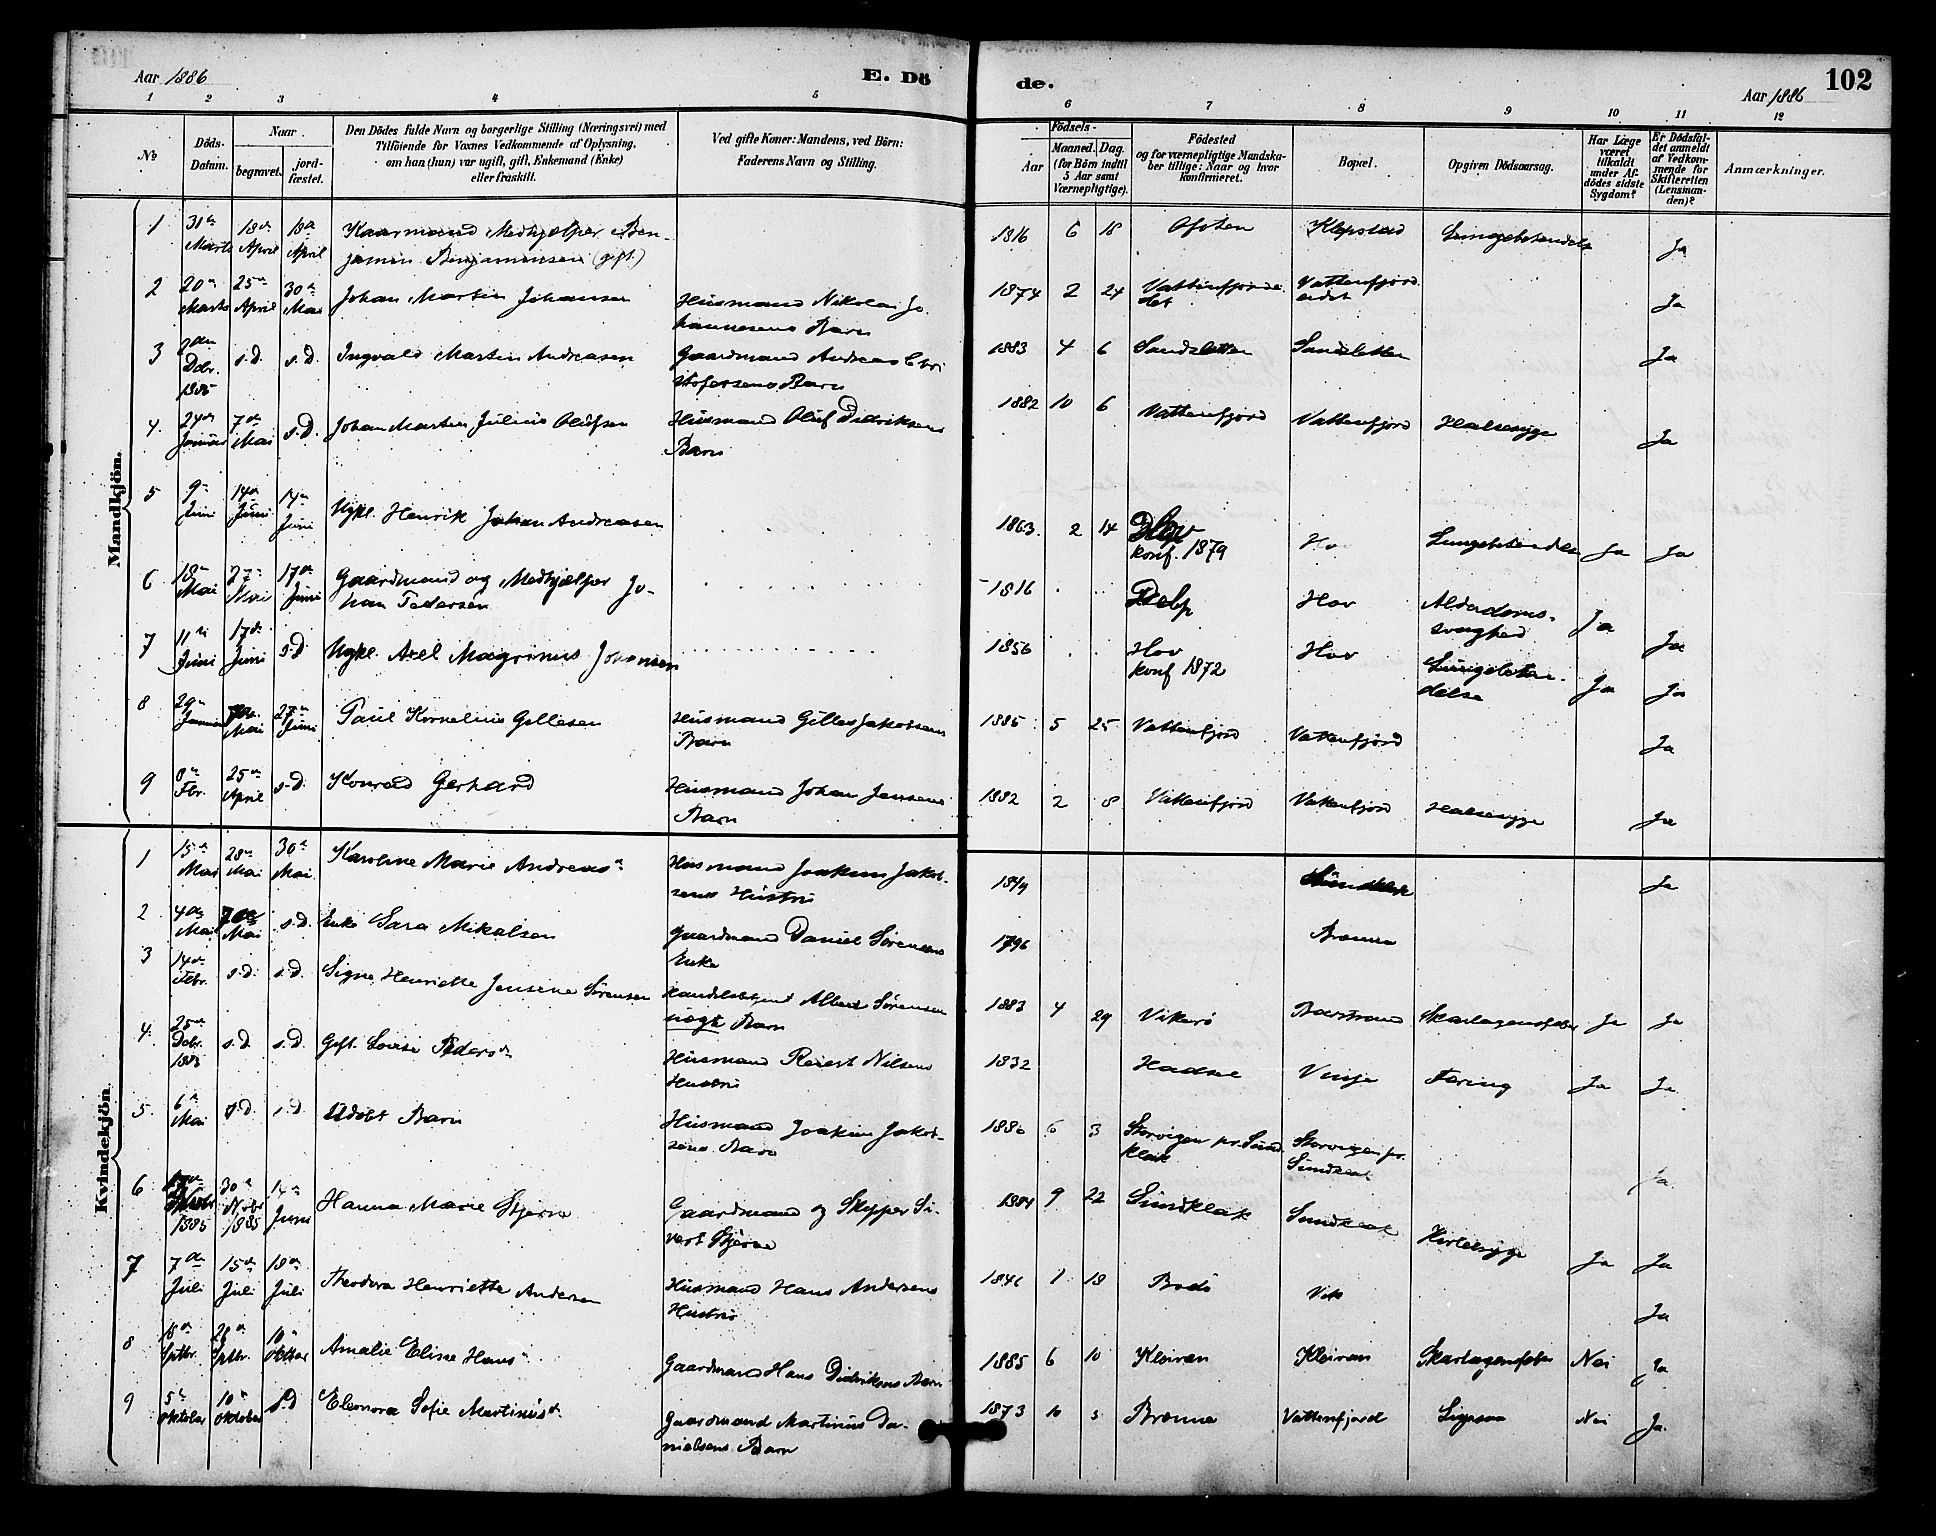 Aar 1886
E. Dö
de.
Aar 1886
102
1 2 3 4 5 6 7 8 9 10 11 12
No
Döds-Datum.
Naar
begravet.
jordfæstet.
Den Dödes fulde Navn og borgerlige Stilling (Næringsvei) med
Tilföiende for Voxnes Vedkommende af Oplysning,
om han (hun) var ugift, gift, Enkemand (Enke)
eller fraskilt.
Ved gifte Koner: Mandens, ved Börn:
Faderens Navn og Stilling.
Födsels-
Aar
Maaned. Dag.
(for Börn indtil
5 Aar samt
Værnepligtige).
Födested
og for værnepligtige Mandska-
ber tillige: Naar og hvor
konfirmeret.
Bopæl.
Opgiven Dödsaarsag.
Har Læge
været
tilkaldt
under Af-
dödes sidste
Sygdom?
Er Dödsfal-
det anmeldt
af Vedkom-
mende for
Skifteretten
(Lensman-
den)?
Anmærkninger.
Mandkjön.
1 31te Marts 18de April 18de April Kaarmand Medhjælper Ben-
jamin Benjaminsen (gift) 1816 6 18 Ofoten Klepstad Lungebetændelse Ja
2 20de Marts 25de April 30te Mai Johan Martin Johansen Husmand Nikolai Jo-
hannesens Barn 1874 2 24 Vattenfjorde
det Vattenfjord
eidet Ja
3 Dcbr. s.D. s.D. Ingvald Martin Andreasen Gaardmand Andreas Chri
stofersens Barn 1883 4 6 Sandsletten Sandsletten Ja
4. 24de Januar 7de Mai s.D. Johan Martin Julius Olufsen Husmand Oluf Didriksens
Barn 1882 10 6 Vattenfjord Vattenfjord Halssyge Ja
5 9de Juni 14de Juni 14de Juni Ugkl. Henrik Johan Andreasen 1863. 2 14
konf. 1879 Hov Lungebetændelse Ja Ja
6 18de Mai 27de Mai 17de Juni Gaardmand og Medhjælper Jo-
han Pedersen 1816 Hov Alderdoms-
svaghed Ja
7 11te Juni 17de Juni s.D Ugkl. Axel Magrinus Johansen 1856 Hov
konf 1872 Hov Lungebetæn-
delse Ja Ja Ja
8 29de Januar Mai 27de Juni Paul Kornelius Gillesen Husmand Gilles Jakobsens
Barn 1885 5 25 Vattenfjord Vattenfjord Ja
9 8de Fbr. 25de April s.D. Konrad Gerhard Husmand Johan Jensens
Barn 1882 2 8 Vattenfjord Vattenfjord Halssyge Ja
Kvindekjön.
1 15de Mai 28de Mai 30te Mai. Karoline Marie Andreasdr Husmand Joakim Jakob-
sens Hustru 1849 Sundklak Ja
2 4de Mai 7de Mai s.D. Enke Sara Mikalsen Gaardmand Daniel Sørensens
Enke 1796 Brenna
3 14de Febr. s.D. s.D. Signe Henriette Jensine Sørensen Handelsbetjent Albert Sørensen
uægte Barn 1883 4 29 Vikerø Barstrand Skarlagensfeber Ja Ja
4. 25de Dcbr. s.D. s.D. Gift. Lovise Pedersdr Husmand Reiert Nilsens
Hustru 1832 Hadsel Vinje Tæring Ja Ja
5. 6te Mai s.D. s.D Udøbt Barn Husmand Joakim Jakob-
sens Barn 1886 5 3 Storvigen pr. Sund-
klak Storvigen pr.
Sundklak Ja
6 1885 30te Novbr 1885 14de Juni Hanna Marie Stjerne Gaardmand og Skipper Si-
vert Stjerne 1884 9 22 Sundklak Sundklak Kirtelsyge Ja Ja
7 7de Juli 15de Juli 18de Juli Theodora Henriette Andersen Husmand Hans Andersens
Hustru 1846 1 18 Bodö Vik Ja
8 18de Sptbr. 26de Sptbr. 10de Oktbr Amalie Elise Hansdr Gaardmand Hans Didriksens Barn 1885 6 10 Kleivan Kleivan Skarlagensfeber Nei Ja
9 5te Oktober 10de Oktober s.D Eleonora Sofie Martinusdr Gaardmand Martinus Da-
nielsens Barn 1873 10 5 Brenna Vattenfjord Nei Ja.